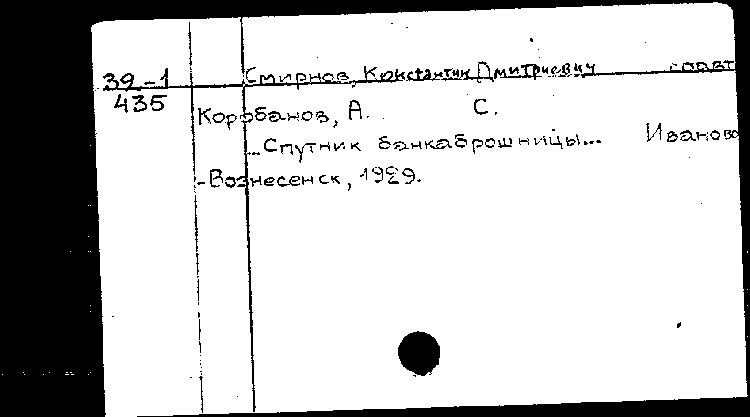 39-1 Смирнов, Константин Дмитриевич соавт
435
Коробанов, А. С.
...Спутник банкаброшницы... Иваново
-Вознесенск, 1929.